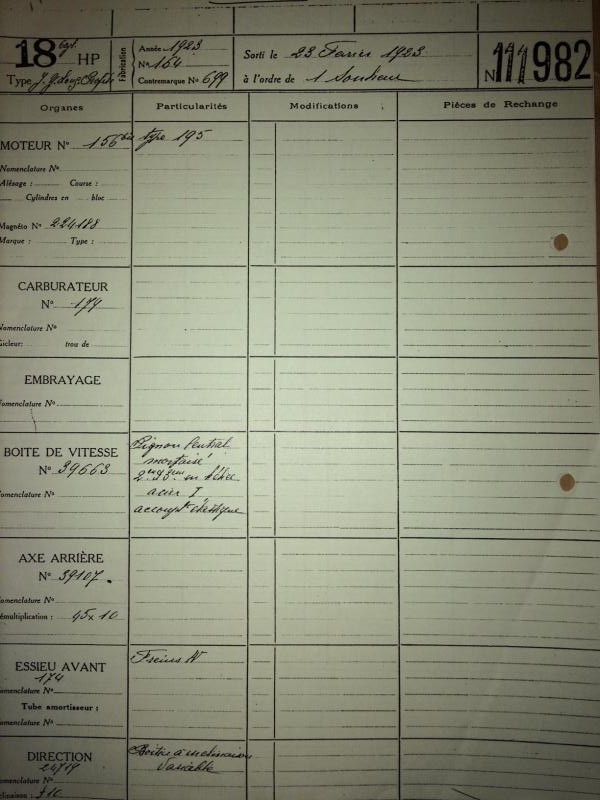 18 HP
Type
Fabrication
Année 1923
N° 164
Contremarque No 699
Sorti le 23 Février 1923
à l'ordre de
N 111982
Organes
Particularités
Modifications
Pièces de Rechange
MOTEUR No 156 bis type 195
Nomenclature No
Alésage : Course :
Cylindres en bloc
Magnéto No 224188
Marque : Type :
CARBURATEUR
No 174
Nomenclature No
Gicleur: trou de
EMBRAYAGE
Nomenclature No
BOITE DE VITESSE
No 39663
Nomenclature No
Pignon central
mortaisé
acier I
AXE ARRIÈRE
No 39107
Nomenclature No
émultiplication : 45x10
ESSIEU AVANT
174
Nomenclature No
Tube amortisseur :
Nomenclature No
Freins N
DIRECTION
24719
Nomenclature No
clinaison : 310
Boitier à inclinaison
variable